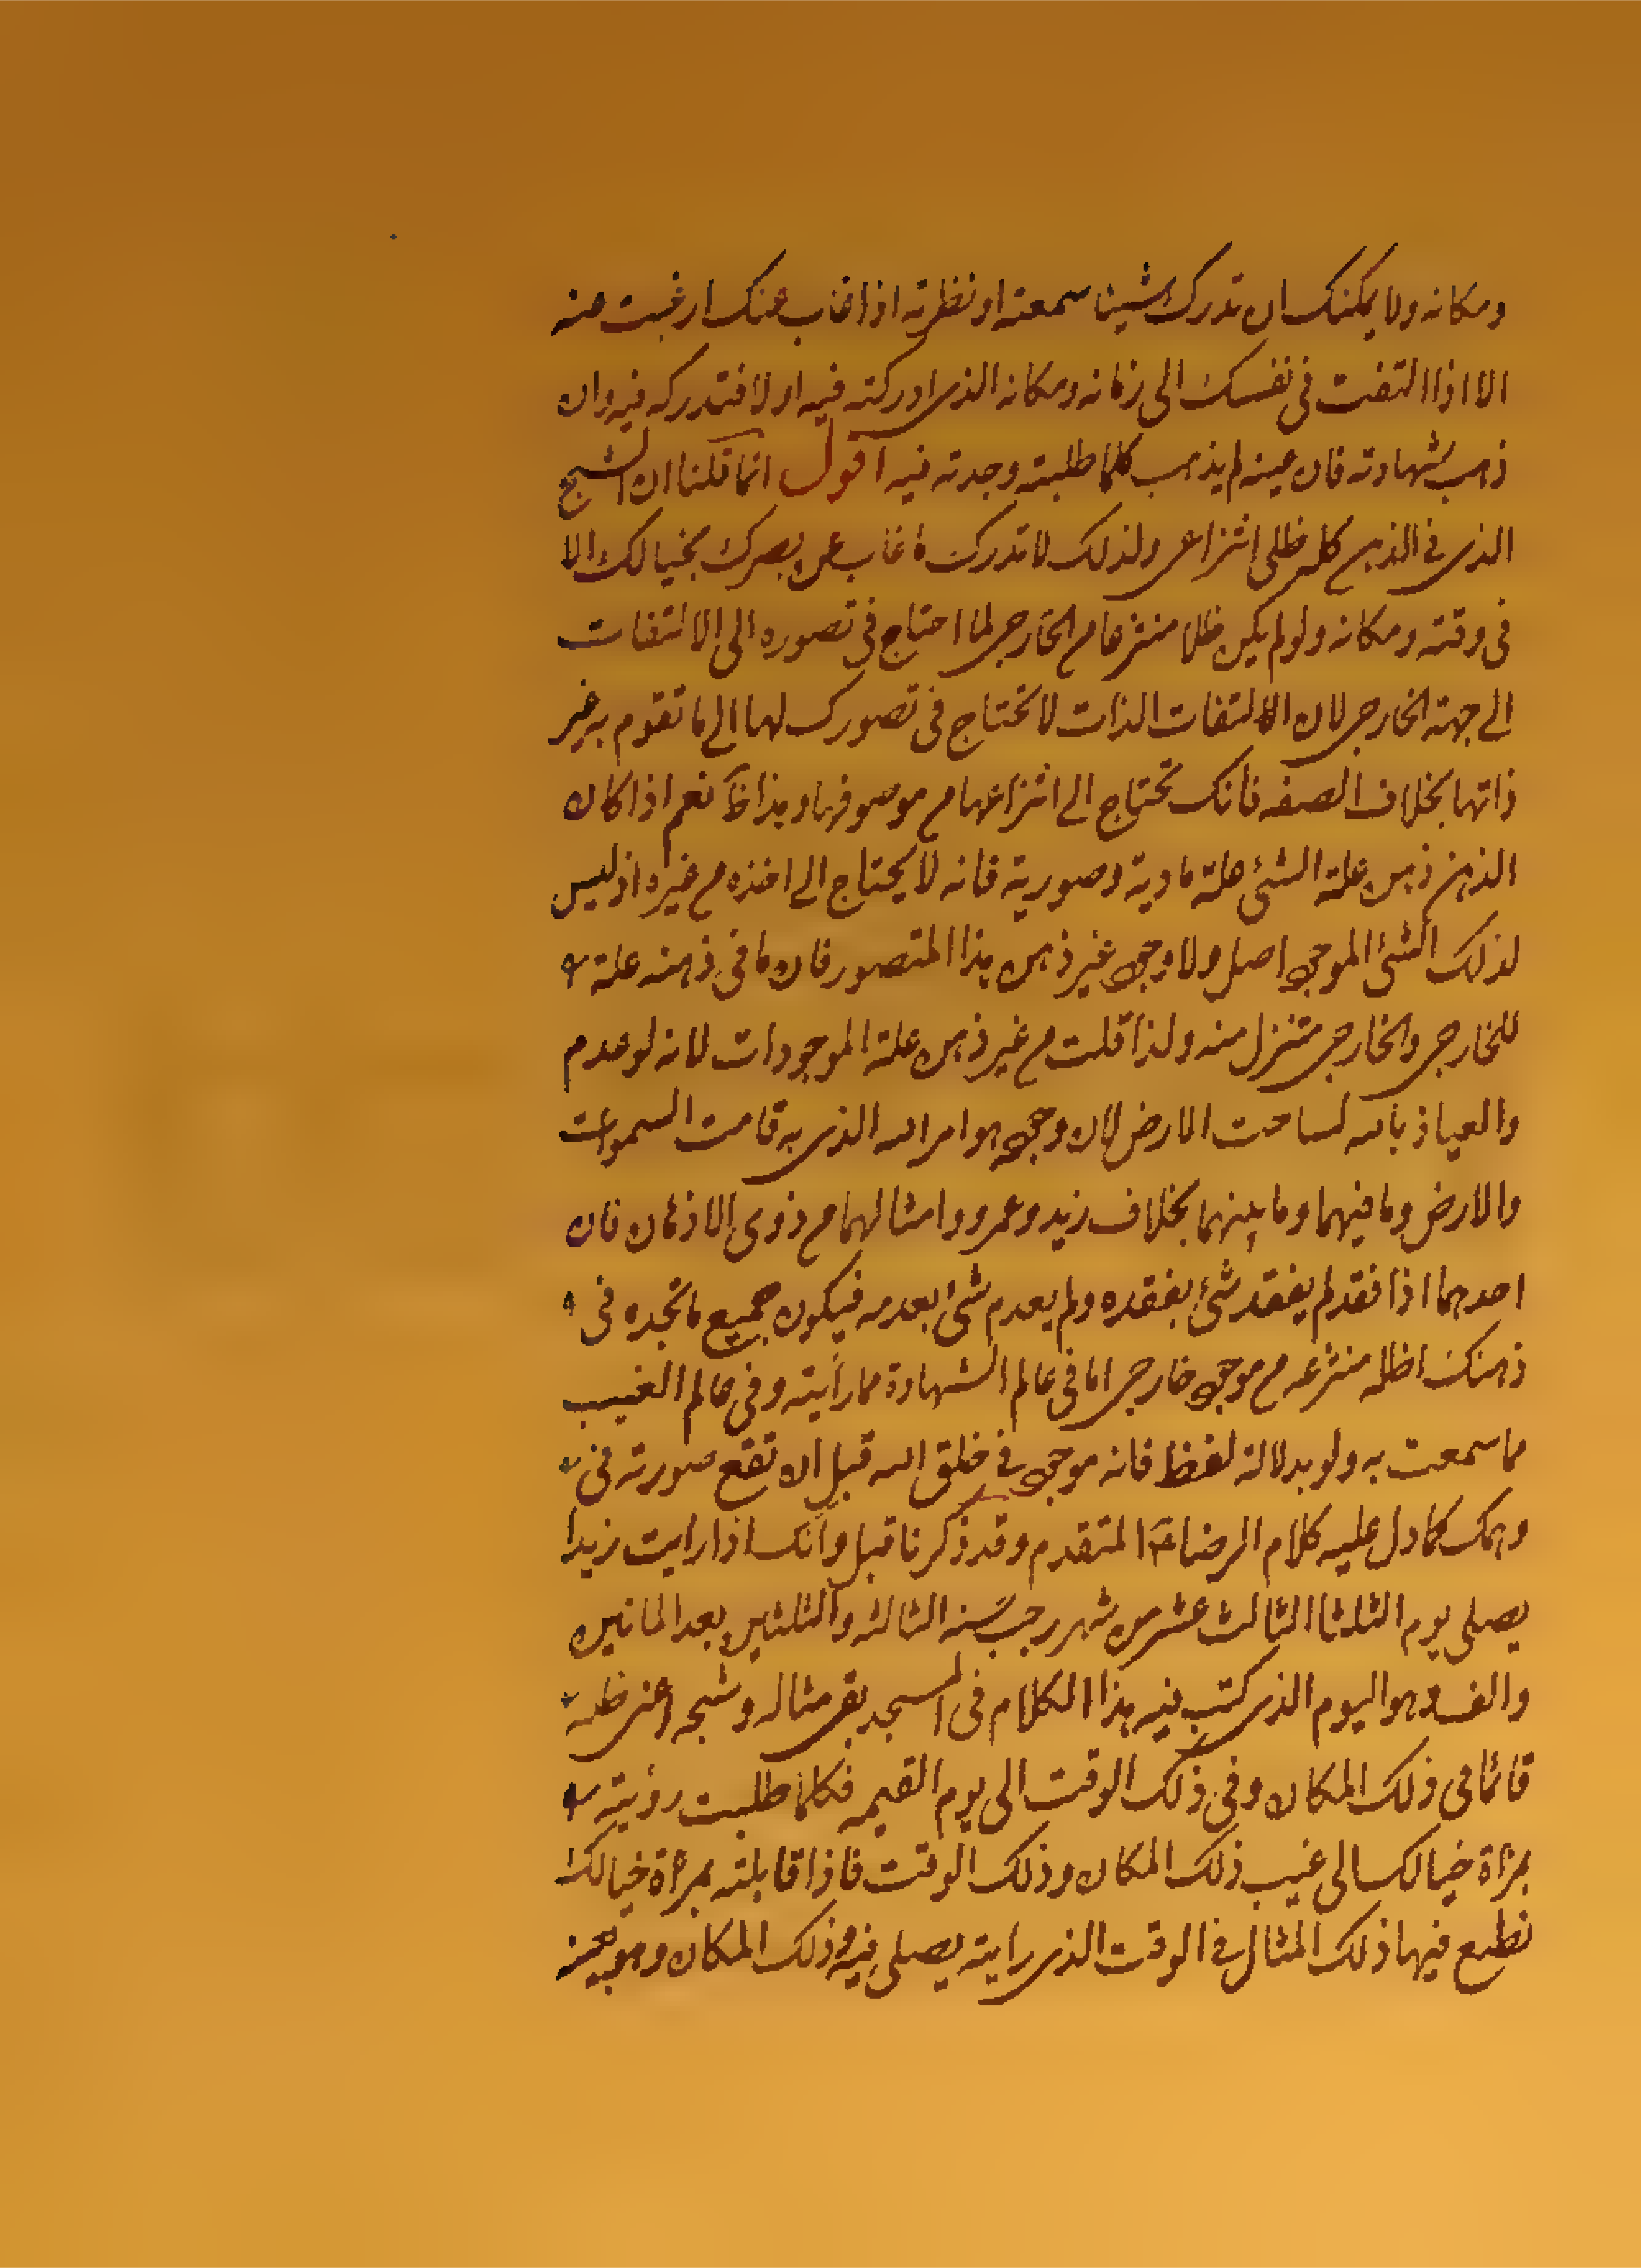 ومكانه ولا يمكنك ان تدرك شيئا سمعته او نظرته اذا غاب عنك ار غبت عنه
الا اذا التفت في نفسك الى زمانه ومكانه الذي ادركته فيه اولا فتدركه فيه وان
ذهب بشهادته فان عينه لم يذهب كلما طلبته وجدته فيه اقول انما قلنا ان الشبح
الذي في الذهن كله ظلي انتزاعي ولذلك لا تدرك ما غاب عن بصرك بخيالك الا
في وقته ومكانه ولو لم يكن ظلا منتزعا م الخارجي لما احتاج في تصوره الى الالتفات
الى جهة الخارجي لان الالتفات الذات لا تحتاج في تصورك لها الى ما تقوم به غير
ذاتها بخلاف الصفه فانك تحتاج الى انتزاعها م موصوفها وهذا ظ نعم اذا كان
الذهن ذهن علة الشئ علة مادية وصورية فانه لا يحتاج الى اخذه م غيره اذ ليس
لذلك الشئ الموجو اصل ولا وجو غير ذهن هذا المتصور فان ما في ذهنه علة
للخارجي والخارجي متنزل منه ولذا قلت م غير ذهن علة الموجودات لانه لو عدم
والعياذ بالله لساخت الارض لان وجوه هو امر الله الذي به قامت السموات
والارض وما فيهما وما بينهما بخلاف زيد وعمرو وامثالهما م ذوى الاذهان فان
احدهما اذا فقد لم يفقد شئ بفقده ولم يعدم شئ بعدمه فيكون جميع ما تجده في
ذهنك اظله منتزعه م موجو خارجي اما في عالم الشهادة مما رأيته وفي عالم الغيب
مما سمعت به ولو بدلالة لفظ فانه موجو في خلق الله قبل ان تقع صورته في
وهمك كما دل عليه كلام الرضا ع المتقدم وقد ذكرنا قبل وانك اذا رايت زيدا
يصلي يوم الثلثا الثالث عشر من شهر رجب سنه الثالثه والثلثين بعد المائتين
والف وهو اليوم الذي كتب فيه هذا الكلام في المسجد بقي مثاله وشبحه اعني ظله
قائما في ذلك المكان وفي ذلك الوقت الى يوم القيمه فكلما طلبت رؤيته
بمرأة خيالك الى غيب ذلك المكان وذلك الوقت فاذا قابلته بمرأة خيالك
نطبع فيها ذلك المثال في الوقت الذي رايته يصلي فيه وذلك المكان وهو بعينه